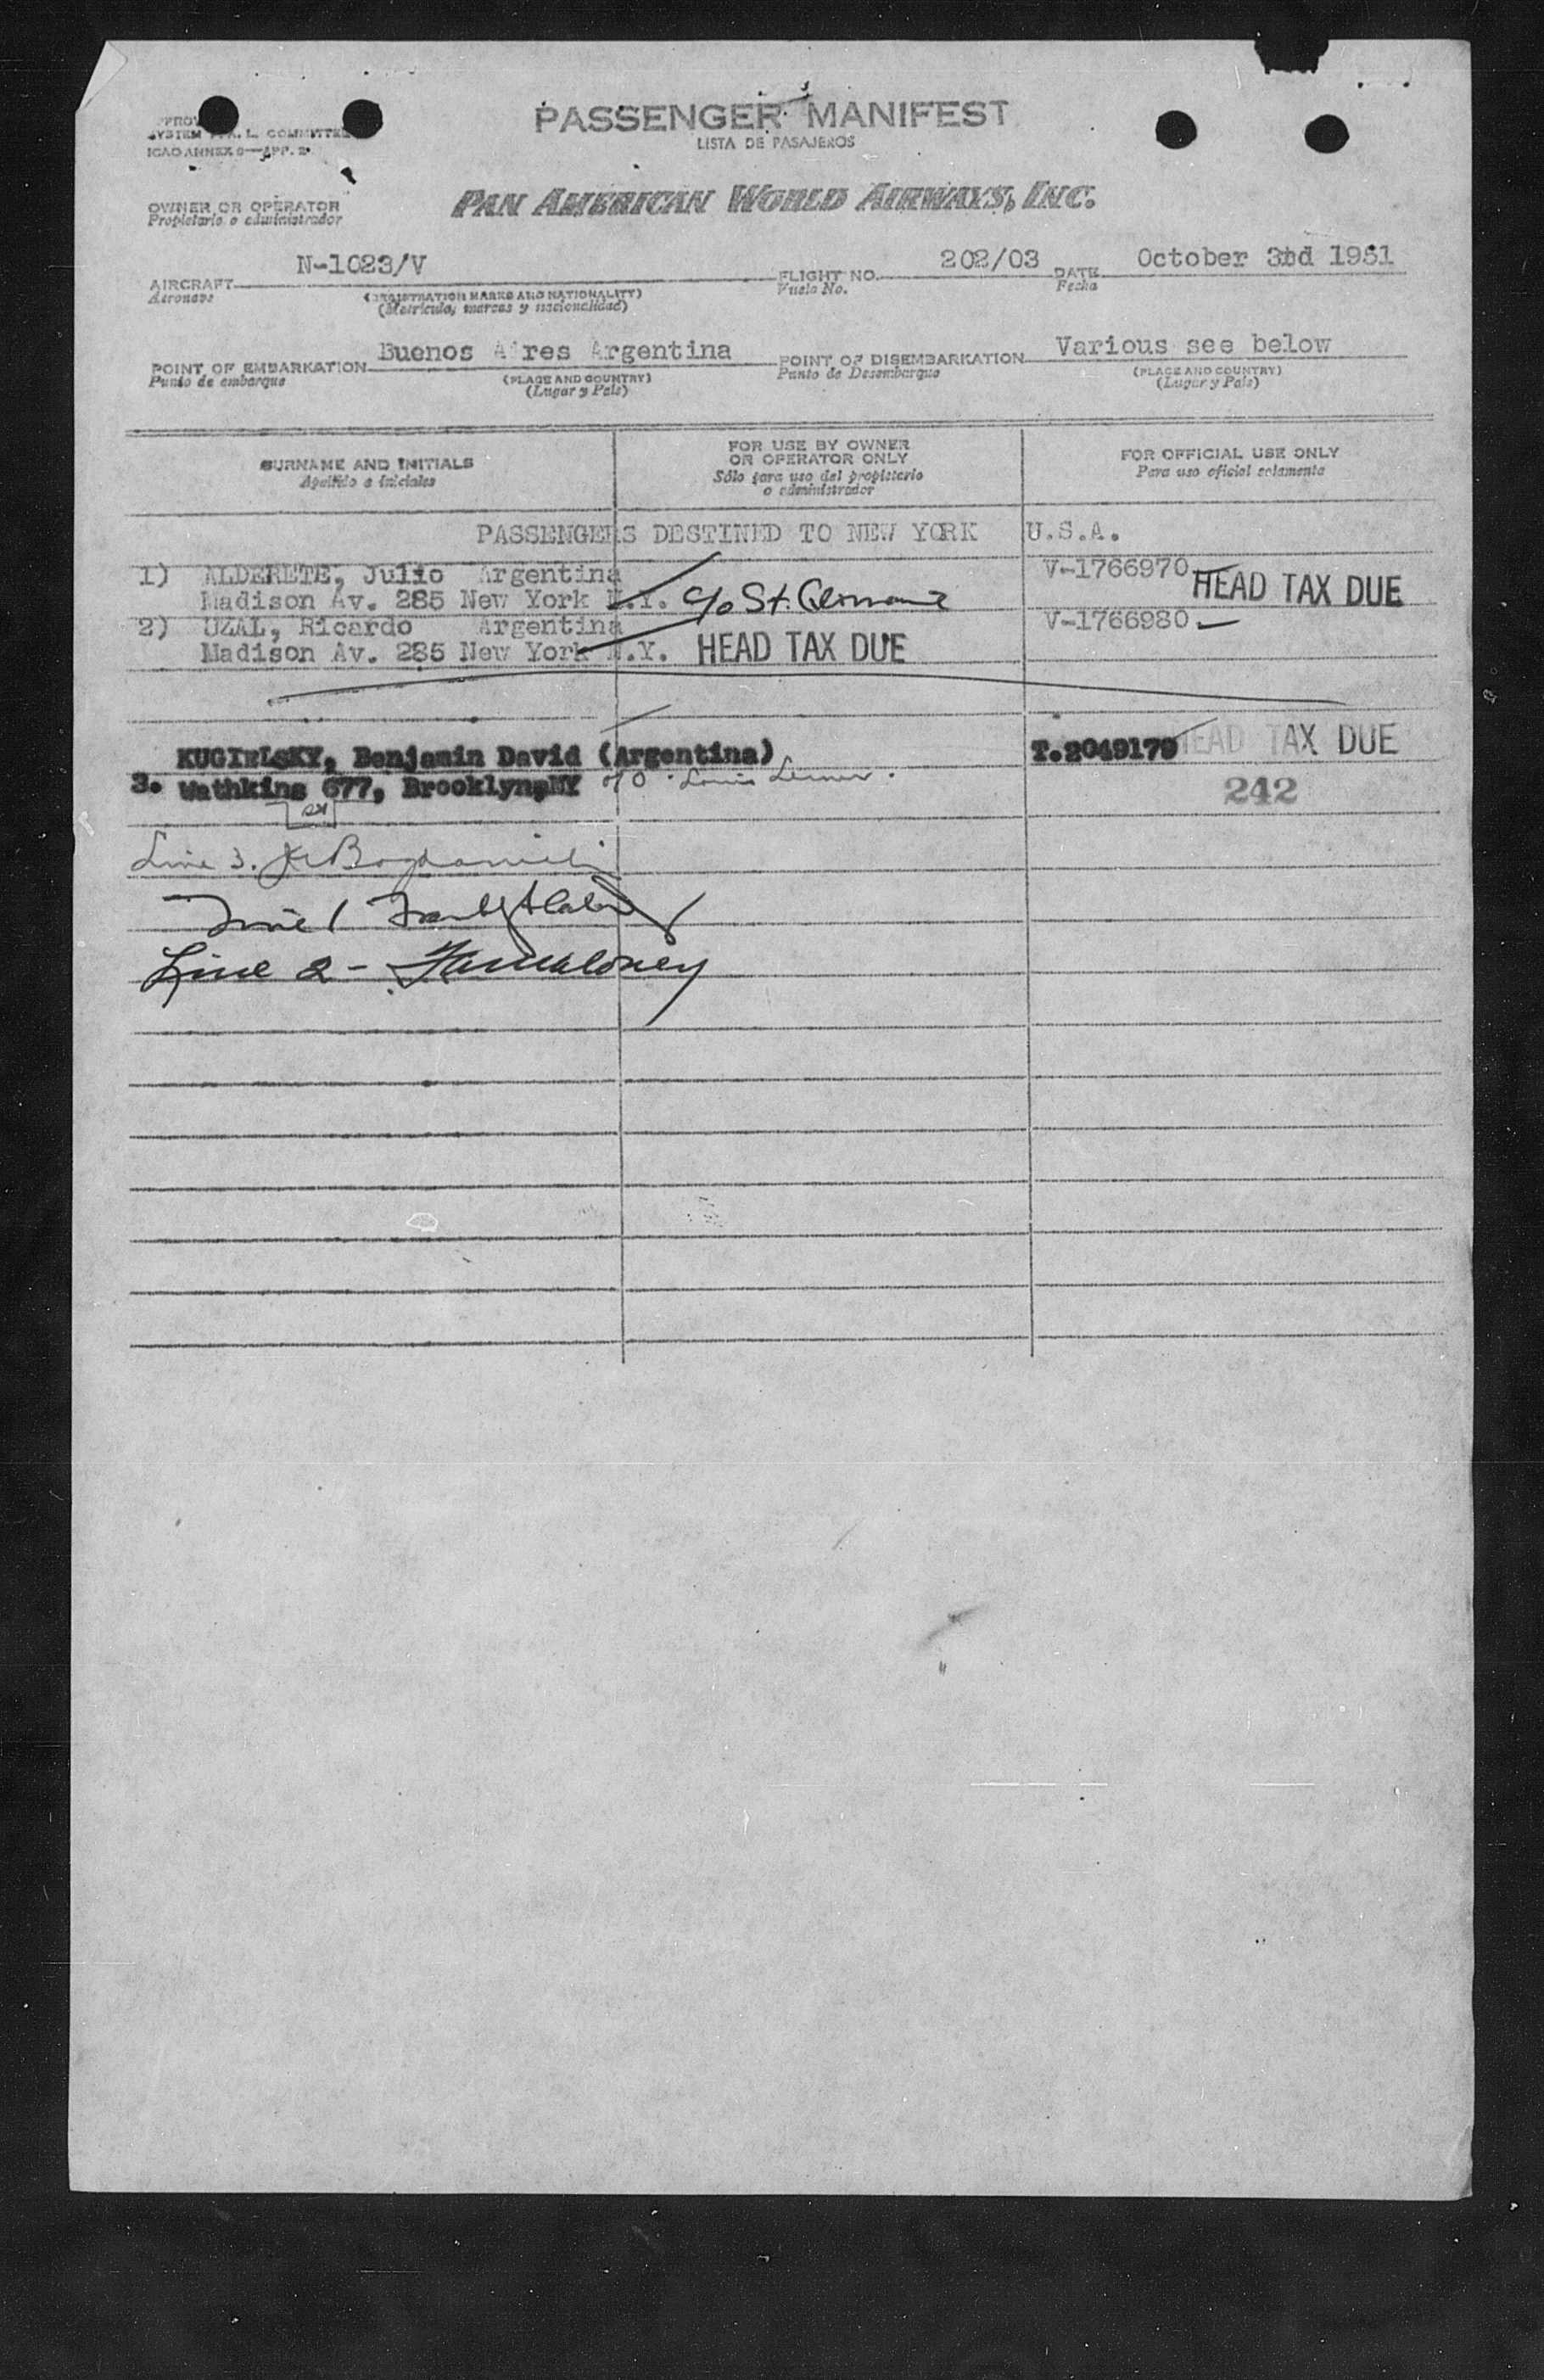 PASSENGER MANIFEST
LISTA DE PASAJEROS
SYSTEM L. COMMITTEE
ICAO ANNEX 9—APP. 2
PAN AMERICAN WORLD AIRWAYS, INC.
OWNER OR OPERATOR
Propietario o administrador
AIRCRAFT N-1023/V FLIGHT NO. 202/03 DATE October 3rd 1951
Aeronave (REGISTRATION MARKS AND NATIONALITY) Vuelo No. Fecha
(Matrícula, marcas y nacionalidad)
POINT OF EMBARKATION Buenos Aires Argentina POINT OF DISEMBARKATION Various see below
Punto de embarque (PLACE AND COUNTRY) Punto de Desembarque (PLACE AND COUNTRY)
(Lugar y País) (Lugar y País)
SURNAME AND INITIALS FOR USE BY OWNER OR OPERATOR ONLY FOR OFFICIAL USE ONLY
Apellido e iniciales Sólo para uso del propietario o administrador Para uso oficial solamente
PASSENGERS DESTINED TO NEW YORK U.S.A.
1) ALDERETE, Julio Argentina V-1766970 HEAD TAX DUE
Madison Av. 285 New York N.Y. c/o St.
2) UZAL, Ricardo Argentina V-1766980
Madison Av. 285 New York N.Y. HEAD TAX DUE
KUGIELSKY, Benjamin David (Argentina) T.2049179 HEAD TAX DUE
3. Wathkins 677, Brooklyn,NY c/o Louis Lerner. 242
Line 3.
Line 1
Line 2 - Maloney